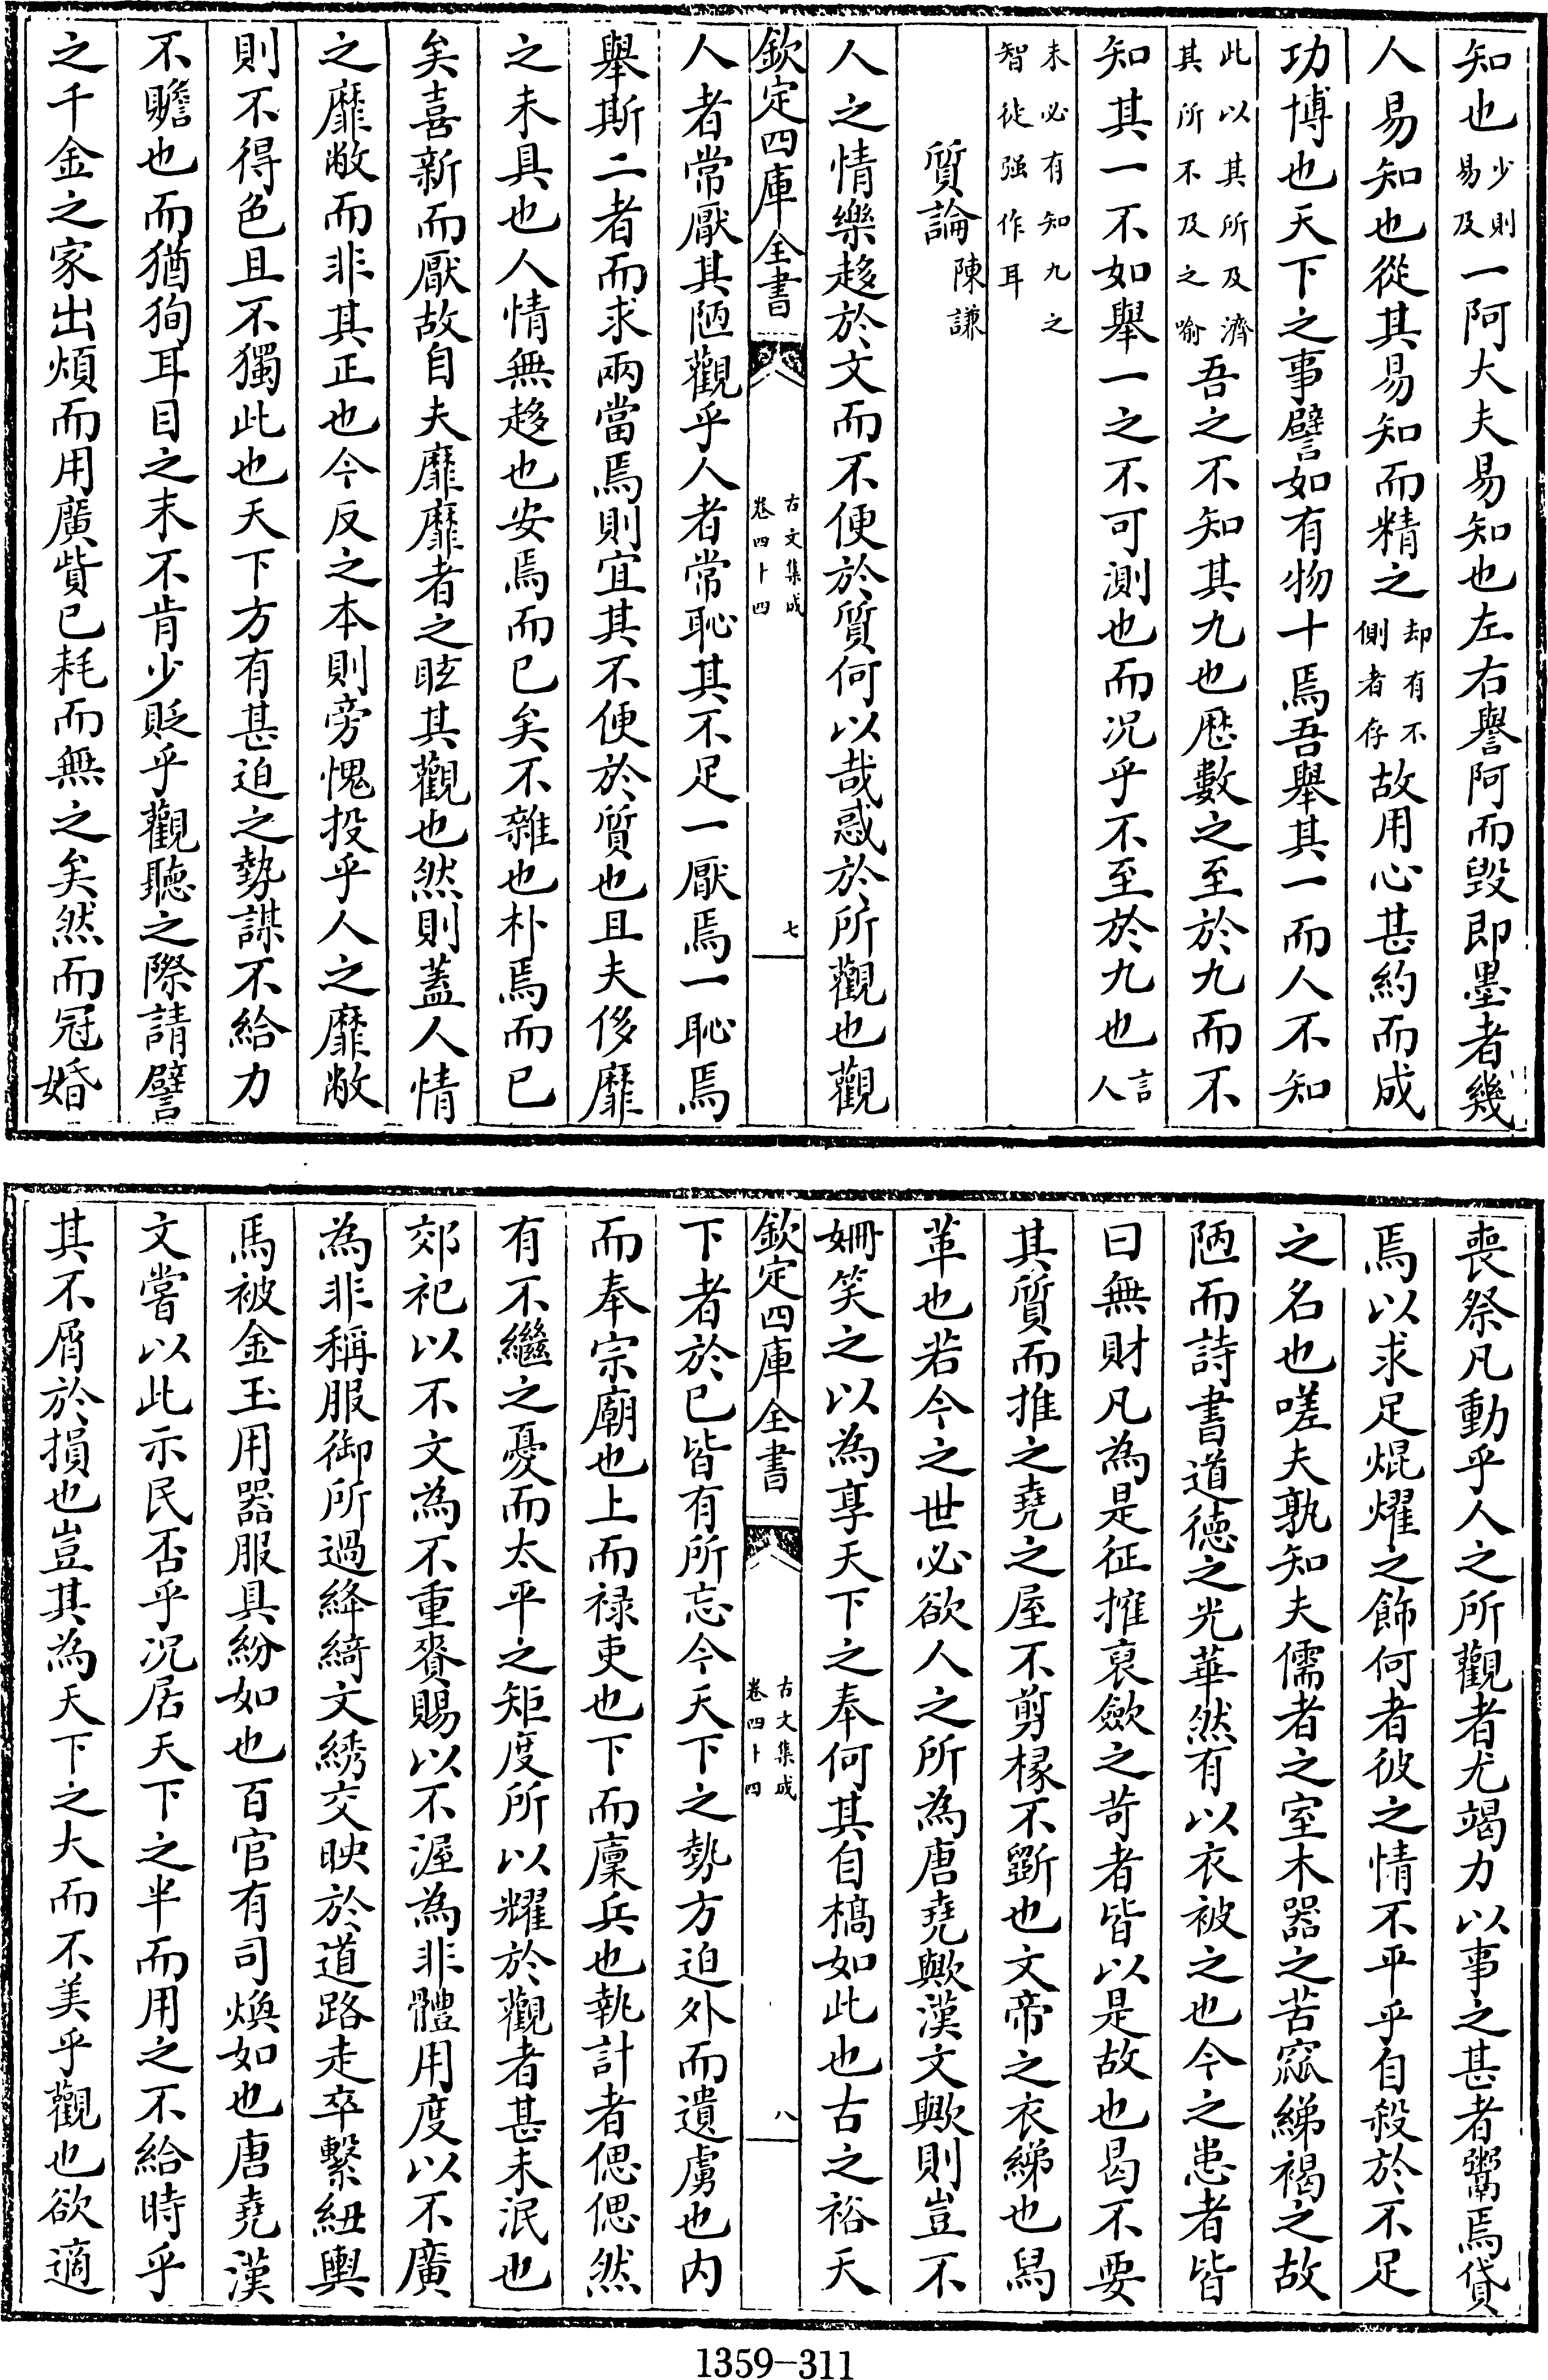 知也少則易及一阿大夫易知也左右譽阿而毀即墨者幾
人易知也從其易知而精之却有不側者存故用心甚約而成
功博也天下之事譬如有物十焉吾舉其一而人不知
此以其所及濟其所不及之喻吾之不知其九也歷數之至於九而不
知其一不如舉一之不可測也而况乎不至於九也言人
未必有知九之智徒强作耳
質論 陳謙
人之情樂趍於文而不便於質何以哉惑於所觀也觀
欽定四庫全書 古文集成 卷四十四 七
人者常厭其陋觀乎人者常恥其不足一厭焉一恥焉
舉斯二者而求兩當焉則宜其不便於質也且夫侈靡
之未具也人情無趍也安焉而已矣不雜也朴焉而已
矣喜新而厭故自夫靡靡者之眩其觀也然則蓋人情
之靡敝而非其正也今反之本則旁愧投乎人之靡敝
則不得色且不獨此也天下方有甚迫之勢謀不給力
不贍也而猶狥耳目之末不肯少貶乎觀聽之際請譬
之千金之家出煩而用廣貲已耗而無之矣然而冠婚
喪祭凡動乎人之所觀者尤竭力以事之甚者鬻焉貸
焉以求足焜燿之飾何者彼之情不平乎自殺於不足
之名也嗟夫孰知夫儒者之室木器之苦窳綈褐之故
陋而詩書道徳之光華然有以衣被之也今之患者皆
曰無財凡為是征搉裒斂之苛者皆以是故也曷不要
其質而推之堯之屋不剪椽不斵也文帝之衣綈也舄
革也若今之世必欲人之所為唐堯歟漢文歟則豈不
姍笑之以為享天下之奉何其自槁如此也古之裕天
欽定四庫全書 古文集成 卷四十四 八
下者於已皆有所忘今天下之勢方迫外而遺虜也内
而奉宗廟也上而禄吏也下而廩兵也執計者偲偲然
有不繼之憂而太平之矩度所以耀於觀者甚未泯也
郊祀以不文為不重賚賜以不渥為非體用度以不廣
為非稱服御所過絳綺文綉交映於道路走卒繫紐輿
馬被金玉用器服具紛如也百官有司煥如也唐堯漢
文嘗以此示民否乎况居天下之半而用之不給時乎
其不屑於損也豈其為天下之大而不美乎觀也欲適
1359-311